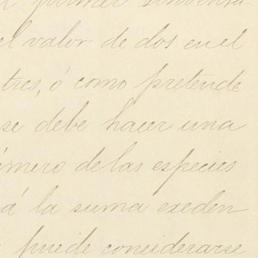 el primer
el valor de dos en el
tres, ó como pretende
se debe hacer una
número de las especies
á la suma exeden
puede considerarse